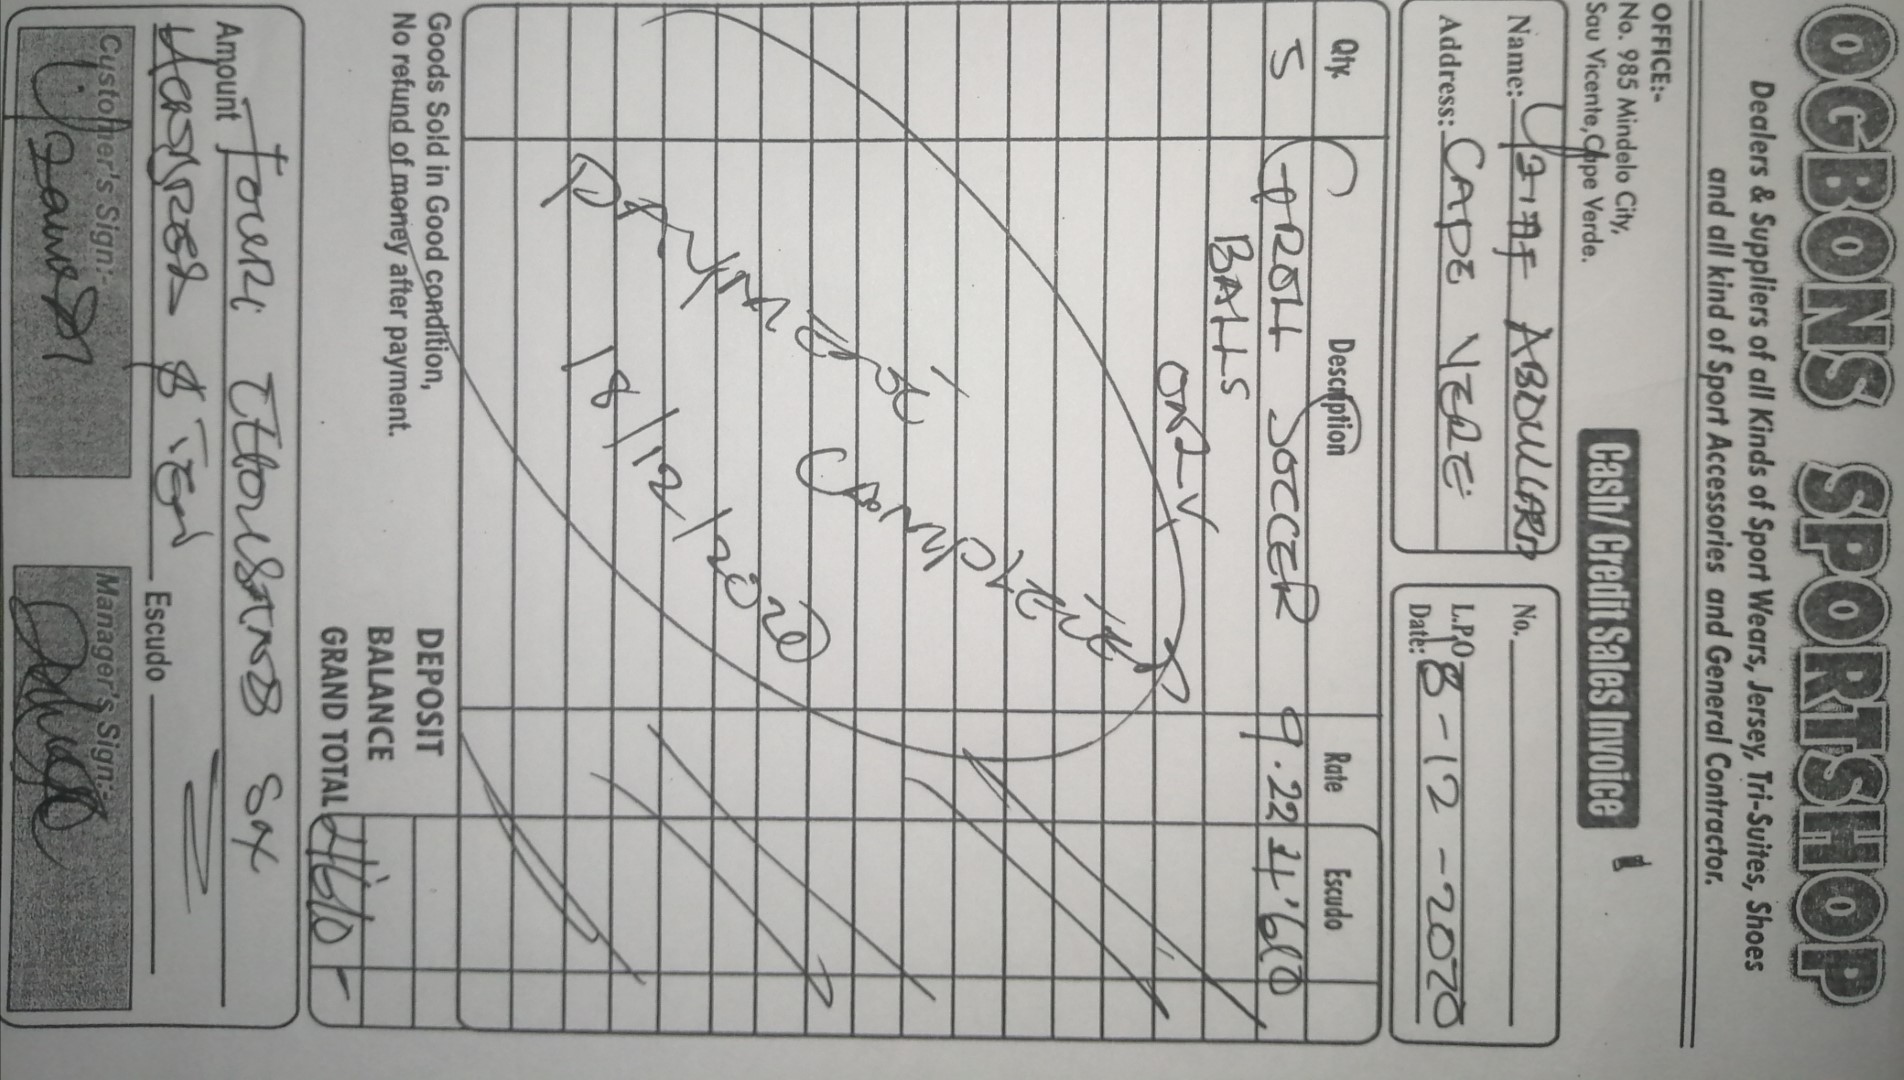 OGBONS SPORTSHOP
Dealers & Suppliers of all Kinds of Sport Wears, Jersey, Tri-Suites, Shoes
and all kind of Sport Accessories and General Contractor.
OFFICE:-
No. 985 Mindelo City,
Sau Vicente,Cape Verde.
Cash/Credit Sales Invoice
Name: ABDULLARD
Address: CAPE VERE
No.
L.P.O
Date: 18-12-2020
Qty. Description Rate Escudo
5 GROLL SOCCER 9.22
BALLS
ONLY
PAYMENT COMPLETED
18/12/2020
Goods Sold in Good condition,
No refund of money after payment.
DEPOSIT
BALANCE
GRAND TOTAL
Amount FOUR THOUSAND SIX
HUNDRED & TEN Escudo
Customer's Sign:-
Manager's Sign:-